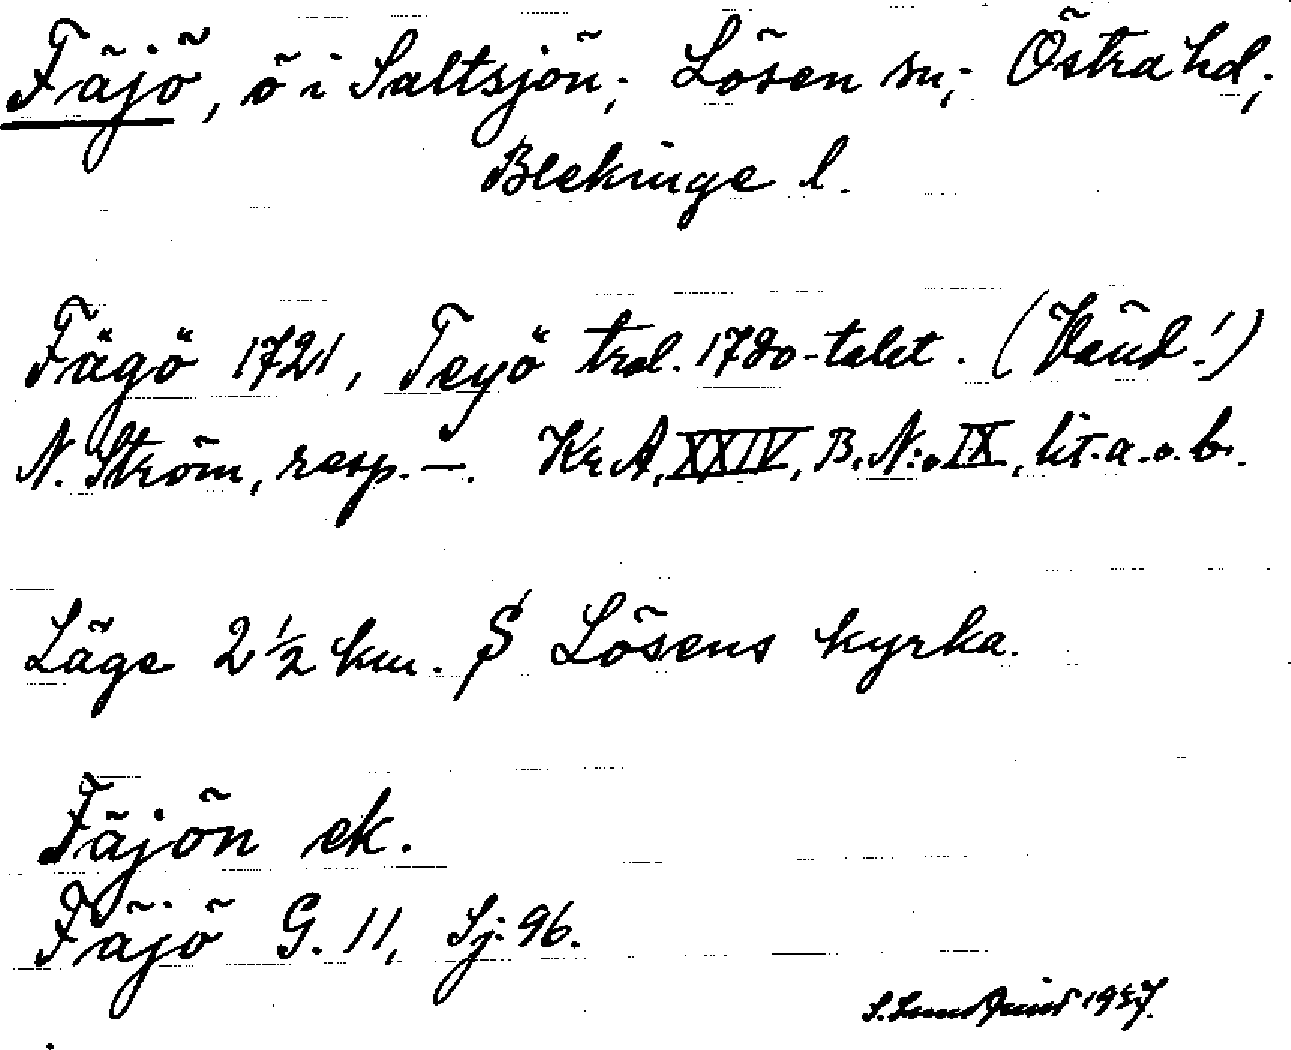 Fäjö, ö i Saltsjön; Lösen sn; Östra hd;
Blekinge l.
Fägö 1721, Teyö trol. 1780-talet. (Känd!)
N. Ström, resp. —. Kr. A, XXIV, B. N:o IX, lit. a. o. b.
Läge 2 1/2 km. S Lösens kyrka.
Fäjön ek.
Fäjö G. 11, Sj. 96.
1937.